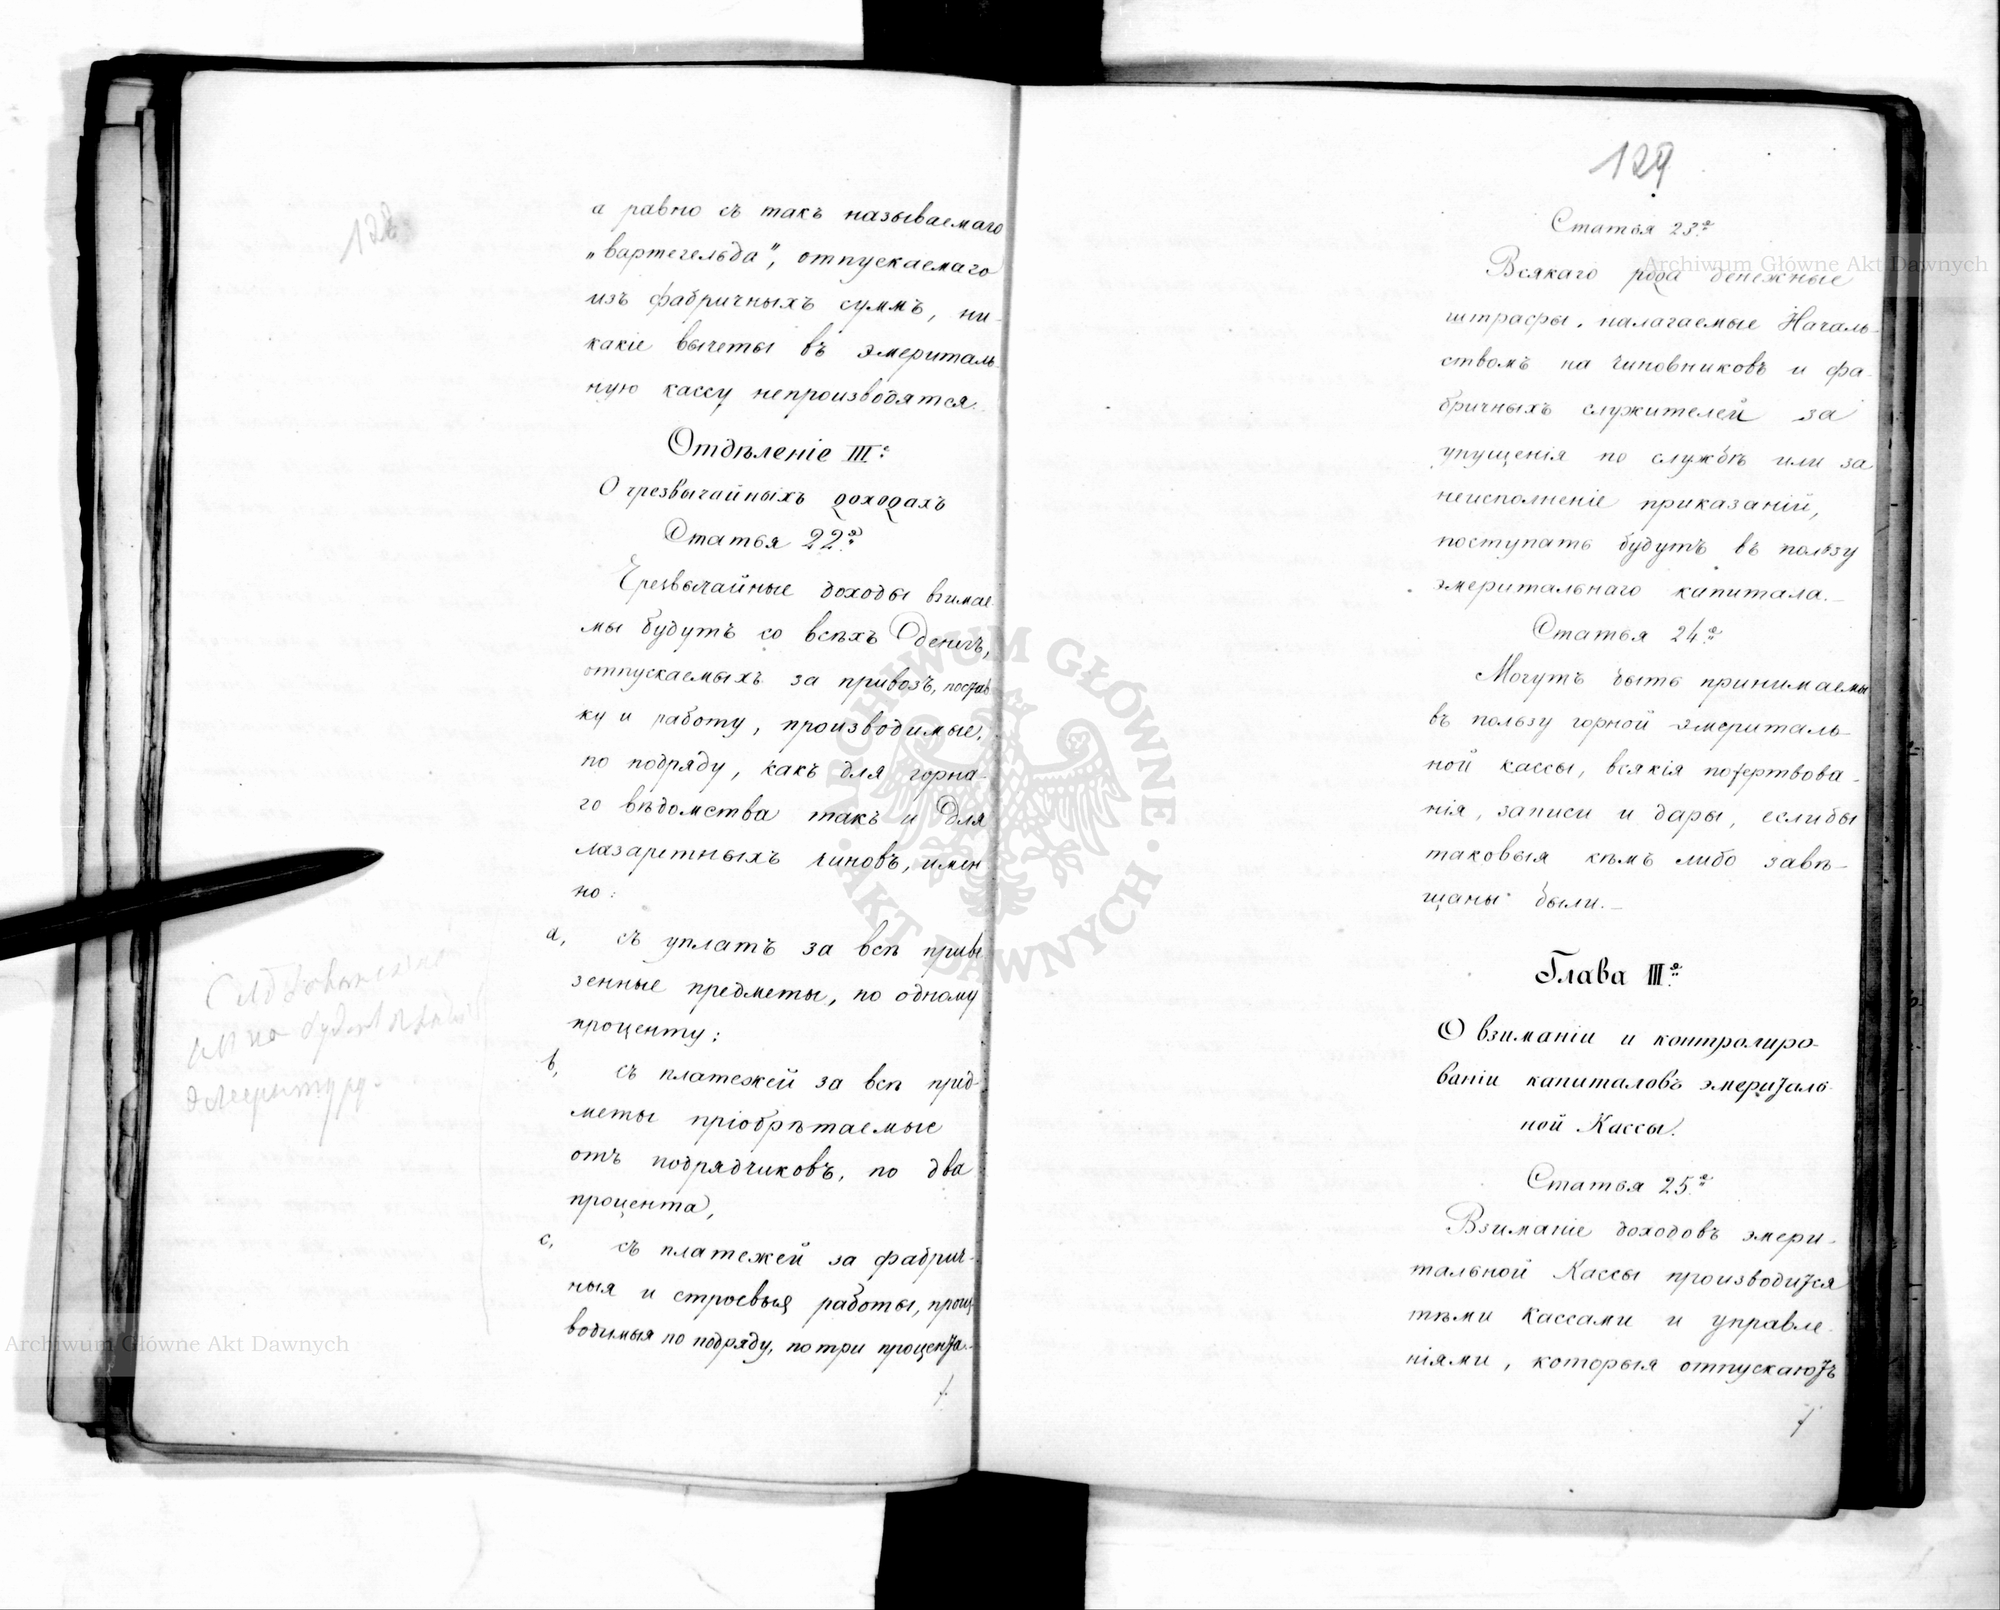 128
а равно съ такъ называемаго
„вартегельда", отпускаемаго
изъ фабричныхъ суммъ, ни-
какіе вычеты въ эмериталь-
ную кассу непроизводятся.
Отдѣленіе III.е
О чрезвычайныхъ доходахъ
Статья 22.а
Чрезвычайные доходы взимае-
мы будутъ со всѣхъ денегъ,
отпускаемыхъ за привозъ, постав-
ку и работу, производимые,
по подряду, какъ для горна-
го вѣдомства такъ и для
лазаретныхъ чиновъ, имен-
но:
a, съ уплатъ за всѣ приве-
зенные предметы, по одному
проценту;
b, съ платежей за всѣ пред-
меты пріобрѣтаемые
отъ подрядчиковъ, по два
процента,
c, съ платежей за фабрич-
ныя и строевыя работы, произ-
водимыя по подряду, по три процента.
129
Статья 23.а
Всякаго рода денежные
штрафы, налагаемые Началь-
ствомъ на чиновниковъ и фа-
бричныхъ служителей за
упущенія по службѣ или за
неисполненіе приказаній,
поступать будутъ въ пользу
эмеритальнаго капитала.—
Статья 24.а
Могутъ быть принимаемы
въ пользу горной эмериталь-
ной кассы, всякія пожертвова-
нія, записи и дары, еслибы
таковыя кѣмъ либо завѣ-
щаны были.—
Глава III.а
О взиманіи и контролиро-
ваніи капиталовъ эмериталь-
ной Кассы.
Статья 25.а
Взиманіе доходовъ эмери-
тальной Кассы производится
тѣми Кассами и управле-
ніями, которыя отпускаютъ
Archiwum Główne Akt Dawnych
Archiwum Główne Akt Dawnych
ARCHIWUM GŁÓWNE · AKT DAWNYCH ·